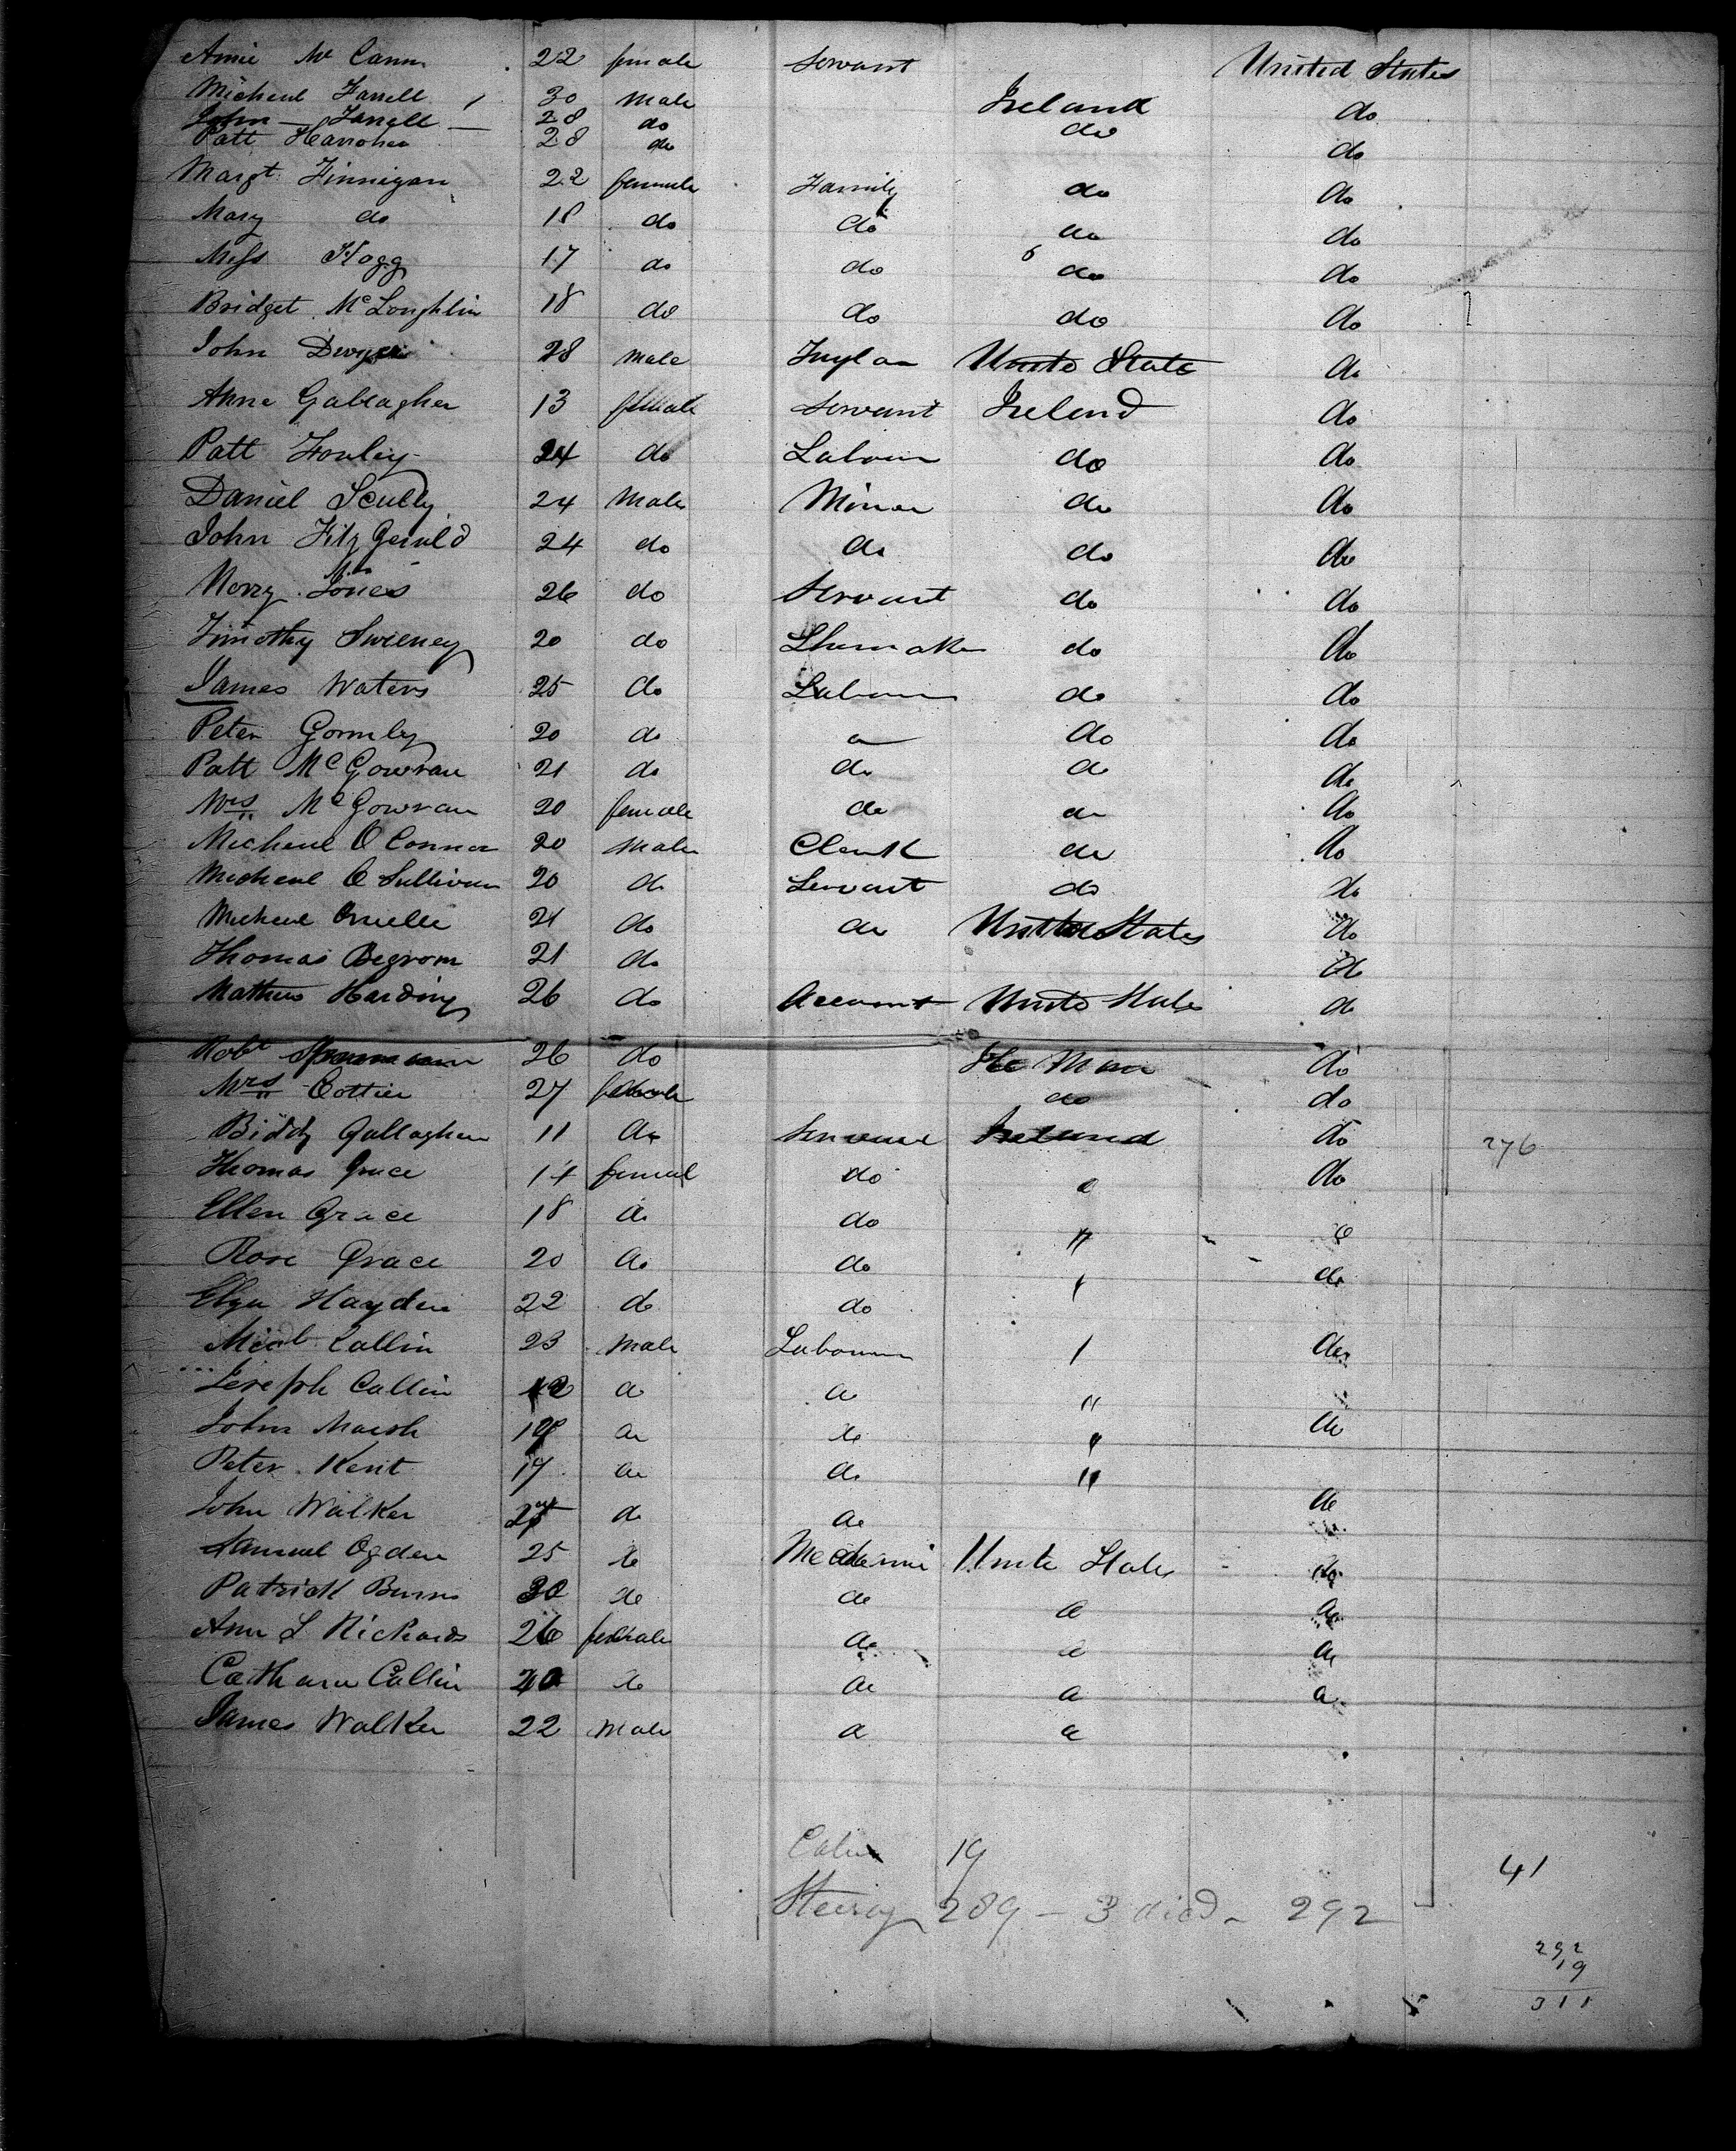 Annie Mc Cann 22 female Servant United States
Micheal Farrell 30 Male Ireland do
John Farrell 28 do do
Patt 28 do do
Margt Finnigan 22 female Family do do
Mary do 18 do do do do
Miss Hogg 17 do do do do
Bridget McLoughlin 18 do do do do
John Dwyer 28 male United State do
Anne Gallagher 13 female Servant Ireland do
Patt Fowley 24 do Labour do do
Daniel Scully 24 Male Minor do do
John FitzGerald 24 do do do do
Jones 26 do Servant do do
Timothy Sweeney 20 do Shumaker do do
James Waters 25 do Labour do do
Peter Gormley 20 do do do
Patt McGowran 21 do do do do
Mrs McGowran 20 female do do do
Micheal O Connor 20 Male Clerk do do
Micheal O Sullivan 20 do Servant do do
Micheal 21 do do United States do
Thomas 21 do do
Mathew Harding 26 do Account United States do
Robt 26 do Ile Man do
Mrs Cottier 27 female do do
Biddy Gallagher 11 do Servant Ireland do 276
Thomas Grace 14 femeal do do
Ellen Grace 18 do do "
Rose Grace 20 do do do
Eliza Hayden 22 do do
Micl Callin 23 Male Labourer do
Joseph Callin 12 do do "
John Marsh do do do
Peter Kent 17 do do "
John Walker do do do
Samuel Ogden 25 do Mechanic Unite States do
Patrick Burns 30 do do do do
Ann L Richards 26 female do do do
Catharn Callin 40 do do do do
James Walker 22 Male do do
Cabin 19
41
Steerag 289 - 3 died - 292
292
19
311